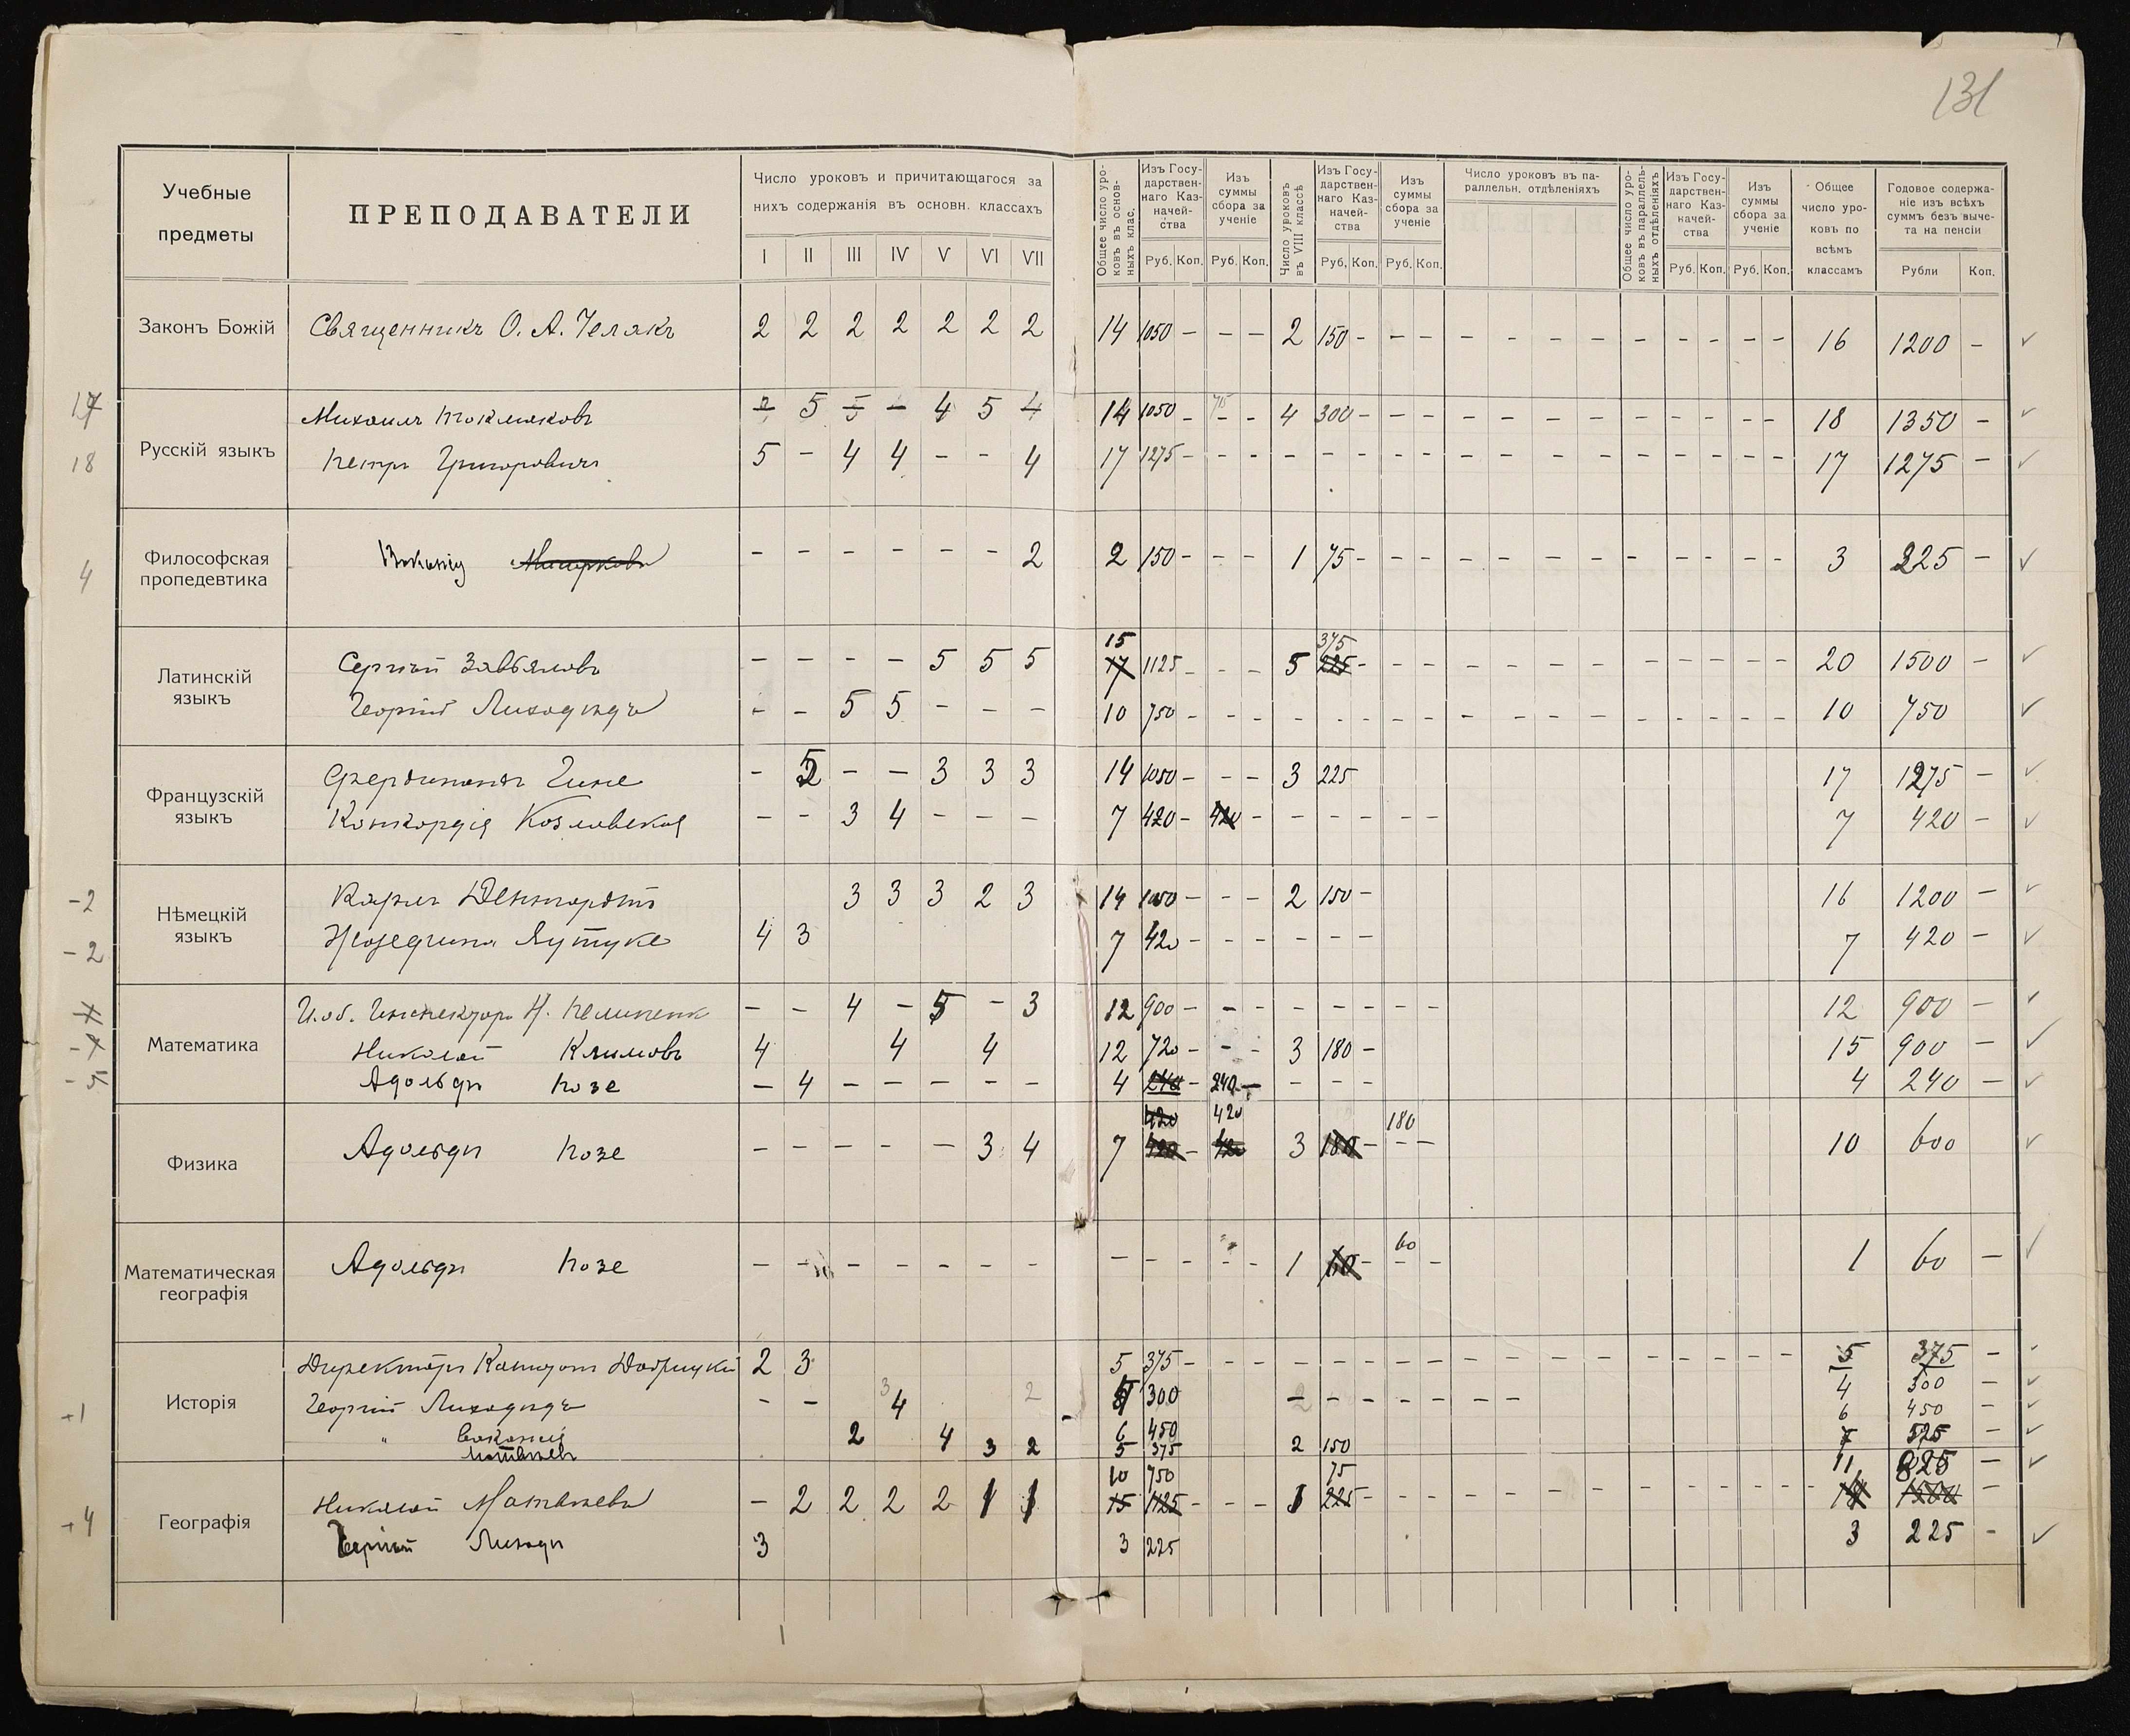 131
Учебные предметы
ПРЕПОДАВАТЕЛИ
Число уроковъ и причитающагося за
нихъ содержанія въ основн. классахъ
I II III IV V VI VII
Общее число уро-
ковъ въ основ-
ныхъ клас.
Изъ Госу-
дарствен-
наго Каз-
начей-
ства
Руб. Коп.
Изъ
суммы
сбора за
ученіе
Руб. Коп.
Число уроковъ
въ VIII классѣ
Изъ Госу-
дарствен-
наго Каз-
начей-
ства
Руб. Коп.
Изъ
суммы
сбора за
ученіе
Руб. Коп.
Число уроковъ въ па-
раллельн. отдѣленіяхъ
Общее число уро-
ковъ въ параллель-
ныхъ отдѣленіяхъ
Изъ Госу-
дарствен-
наго Каз-
начей-
ства
Руб. Коп.
Изъ
суммы
сбора за
ученіе
Руб. Коп.
Общее
число уро-
ковъ по
всѣмъ
классамъ
Годовое содержа-
ніе изъ всѣхъ
суммъ безъ выче-
та на пенсіи
Рубли Коп.
Законъ Божій Священникъ О. А. 2 2 2 2 2 2 2 14 1050 - - - 2 150 - - - - - - - - - - - - - 16 1200 -
17 Михаилъ 5 - 4 5 4 14 1050 - - - 4 300 - - - - - - - - - - - - 18 1350 -
Русскій языкъ
18 Петръ Григоровичъ 5 - 4 4 - - 4 17 1275 - - - - - - - - - - - - - - - - - - 17 1275 -
4 Философская
пропедевтика - - - - - - 2 2 150 - - - 1 75 - - - - - - - - - - - - - 3 225 -
Латинскій
языкъ
Сергѣй Завьяловъ - - - - 5 5 5 15 17 1125 - - - 5 375 225 - - - - - - - - - - - - - 20 1500 -
Георгій - - 5 5 - - - 10 750 - - - - - - - - - - - - - - - - - - 10 750
Французскій
языкъ
Фердинандъ Гине - 5 - - 3 3 3 14 1050 - - - 3 225 17 1275 -
Конкордія Козловская - - 3 4 - - - 7 420 - 420 - - - - - - - 7 420 -
-2 Карлъ 3 3 3 2 3 14 1050 - - - 2 150 - 16 1200 -
Нѣмецкій
языкъ
-2 4 3 7 420 - - - - - - 7 420 -
И. об. Инспектора - - 4 - 5 - 3 12 900 - - - - - - - - - 12 900 -
Математика Николай Климовъ 4 4 4 12 720 - - - 3 180 - 15 900 -
-5 Адольфъ Позе - 4 - - - - - 4 240 - 240 - - - - 4 240 -
420 420 180
Физика Адольфъ Позе - - - - - 3 4 7 420 - 420 3 180 - - - 10 600
60
Математическая
географія Адольфъ Позе - - - - - - - - - - - - 1 60 - - - 1 60 -
Директоръ 2 3 5 375 - - - - - - - - - - - - - - - - - - 5 375 -
Исторія Георгій - - 3 4 2 300 - - - - - - 4 300 -
+1 " 6 450 6 450 -
Матвѣевъ 2 4 3 2 5 375 2 150 7 525 -
10 750 75 11 825 -
Географія Николай Матвѣевъ - 2 2 2 2 1 1 15 1125 - - - 1 225 - - - - - - - - - - - - 1500 -
+4 Георгій 3 3 225 3 225 -